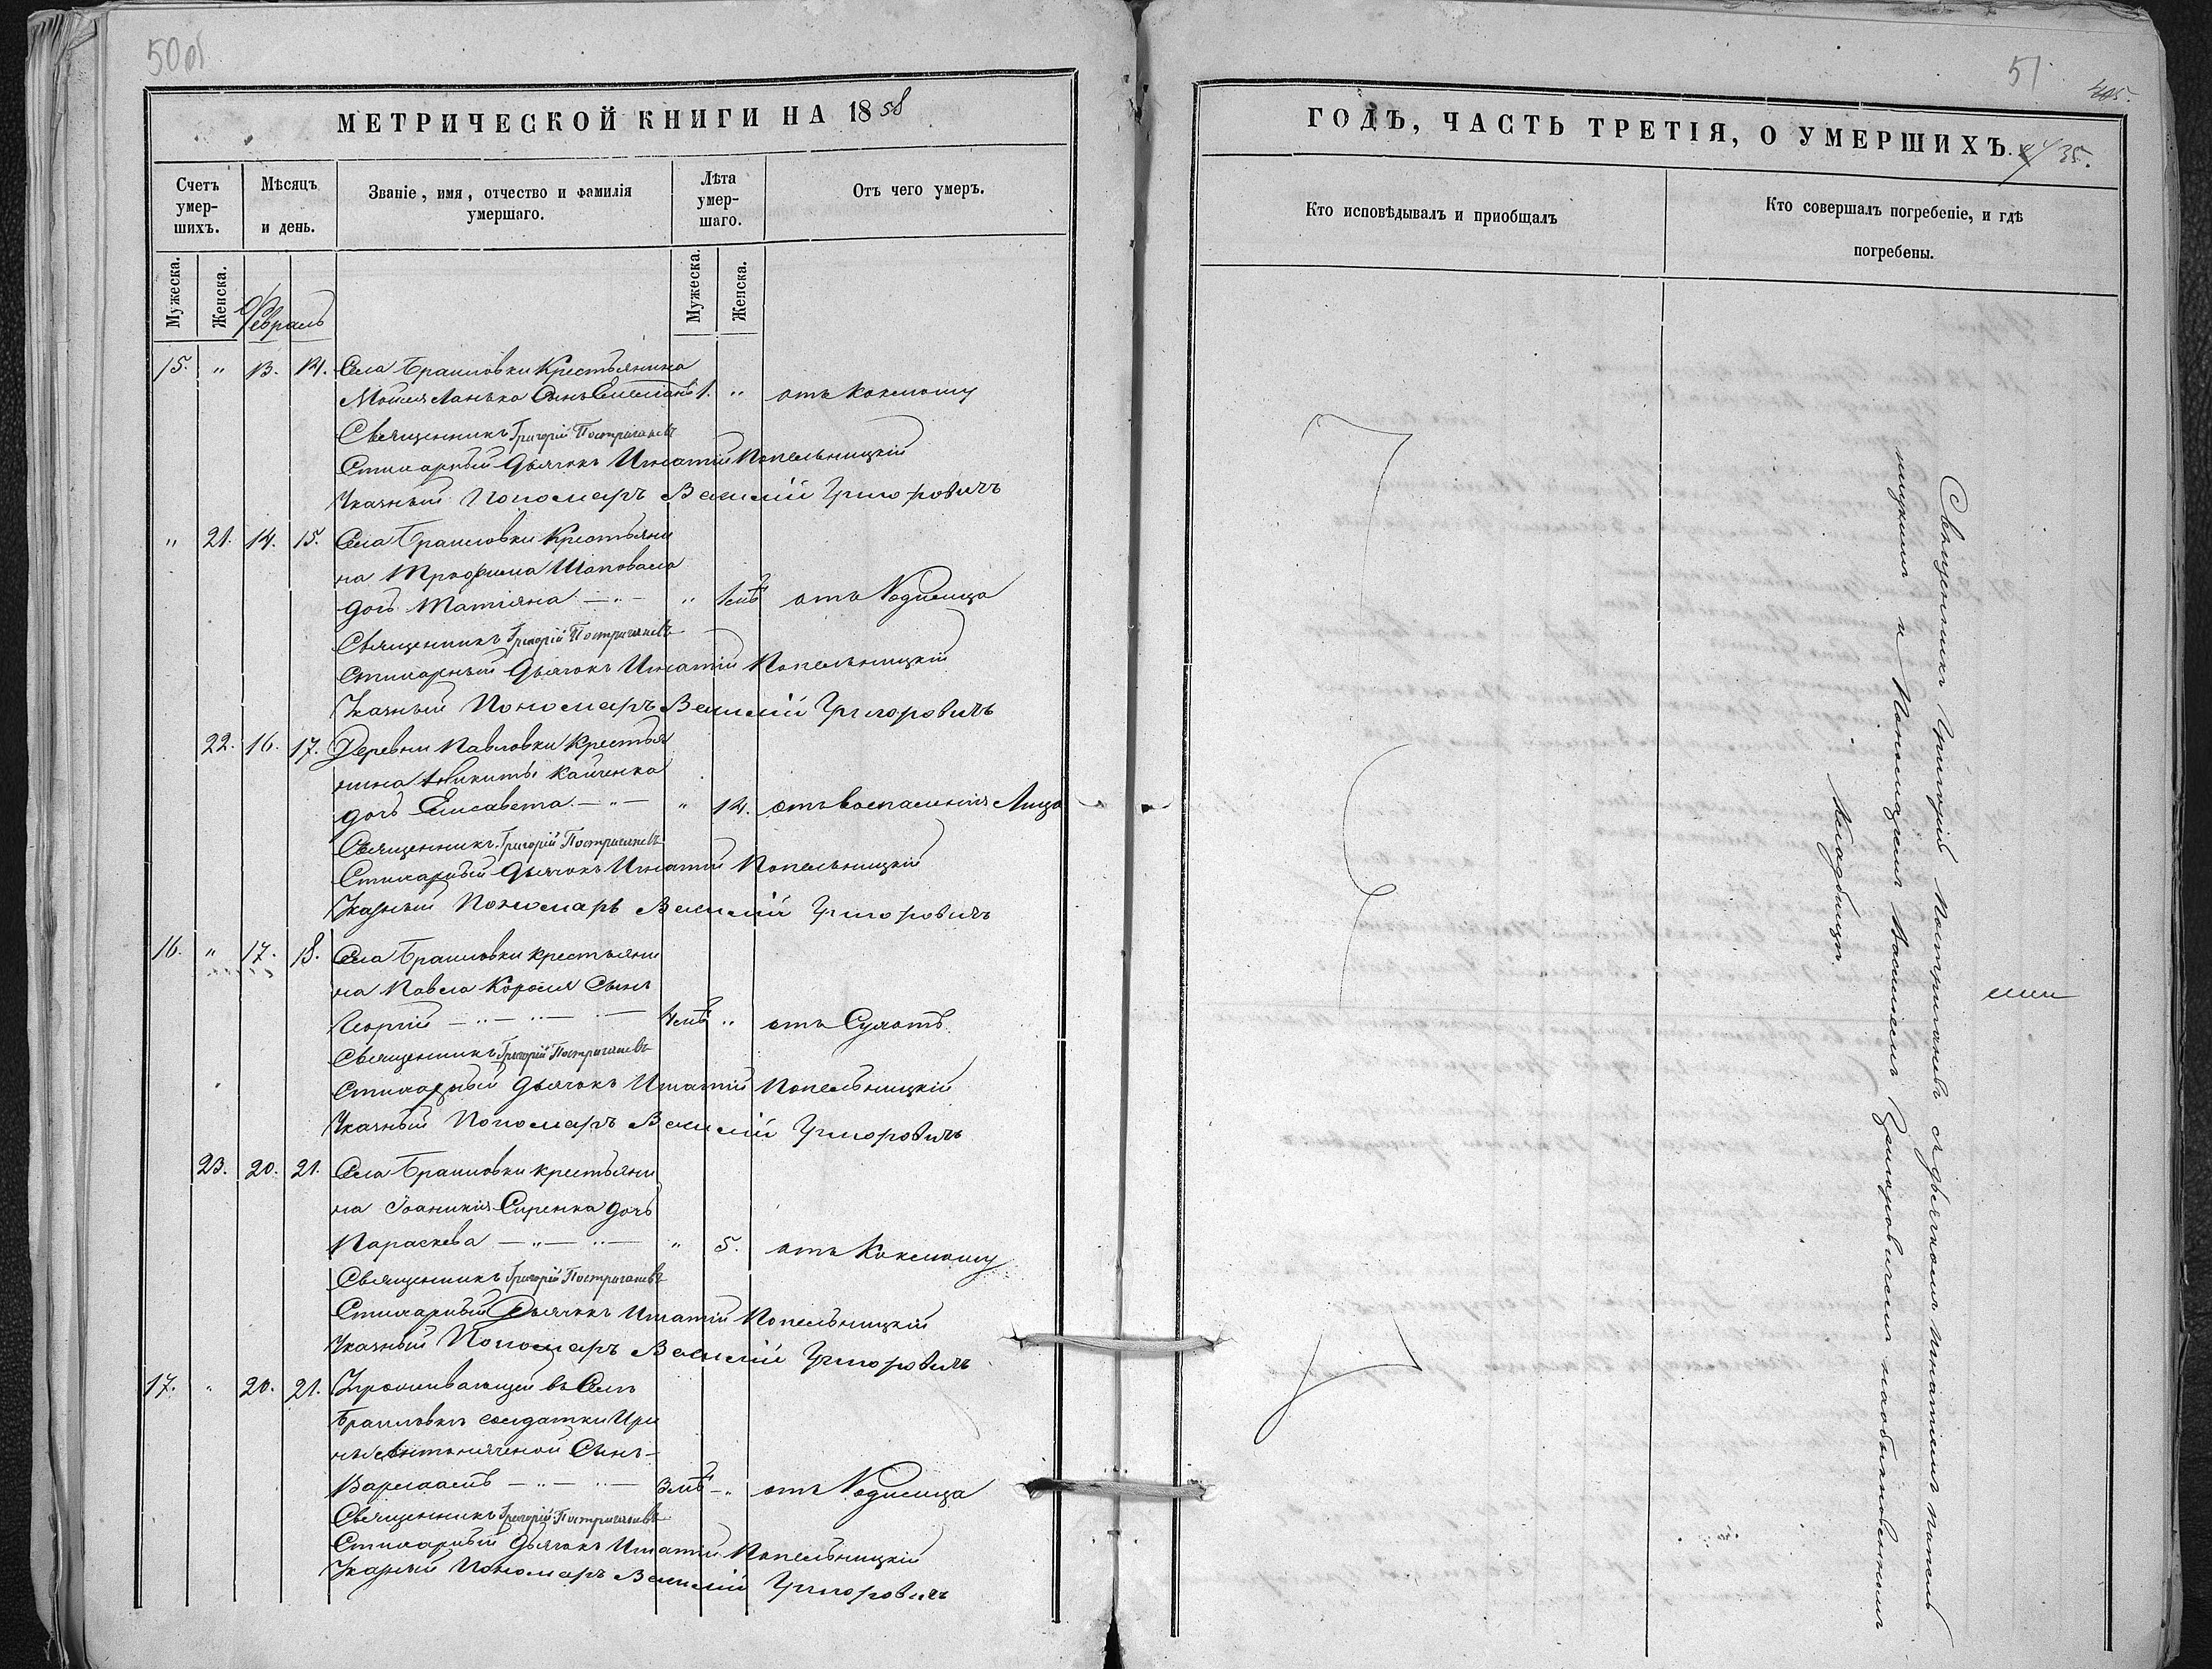 50об
МЕТРИЧЕСКОЙ КНИГИ НА 1858
Счетъ умер-шихъ.
Мѣсяцъ и день.
Званіе, имя, отчество и фамилія умершаго.
Лѣта умер-шаго.
Отъ чего умеръ.
Мужеска.
Женска.
Февраль
Мужеска.
Женска.
15. " 13. 14. Села Браиловки Крестьянина
Мойсея Ланька Сынъ 1. " отъ Коклюшу
Священникъ Григорій Постригачевъ
Стихарный Дьячокъ Игнатій Копельницкій
Указный Пономарь Василій Григоровичъ
" 21. 14. 15. Села Браиловки Крестьяни
на Трофима Шаповала
дочь Татіяна — " — " отъ Родимца
Священникъ Григорій Постригачевъ
Стихарный Дьячокъ Игнатій Копельницкій
Указный Пономарь Василій Григоровичъ
22. 16. 17. Деревни Павловки Крестья
нина Никиты
дочь Елисавета — " — " 14. отъ воспаленія
Священникъ Григорій Постригачевъ
Стихарный Дьячокъ Игнатій Копельницкій
Указный Пономарь Василій Григоровичъ
16. " 17. 18. Села Браиловки крестьяни
на Павла Короля Сынъ
Георгій — " — " — "
Священникъ Григорій Постригачевъ
Стихарный Дьячокъ Игнатій Копельницкій
Указный Пономарь Василій Григоровичъ
23. 20. 21. Села Браиловки крестьяни
на Іоаникія Сиренка дочь
Параскева — " — " — " 5. отъ Коклюшу
Священникъ Григорій Постригачевъ
Стихарный Дьячокъ Игнатій Копельницкій
Указный Пономарь Василій Григоровичъ
17. " 20. 21. въ Селѣ
Браиловкѣ солдатки Ири
ны Сынъ
Варлаамъ — " — " — " отъ Родимца
Священникъ Григорій Постригачевъ
Стихарный Дьячокъ Игнатій Копельницкій
Указный Пономарь Василій Григоровичъ
51
ГОДЪ, ЧАСТЬ ТРЕТІЯ, О УМЕРШИХЪ.
35.
Кто исповѣдывалъ и пріобщалъ
Кто совершалъ погребеніе, и гдѣ погребены.
Священникъ Григорій Постригачевъ съ дьячкомъ Игнатіемъ Копель
ницкимъ и Пономаремъ Василіемъ Григоровичемъ наобыкновенномъ
Кладбищѣ.